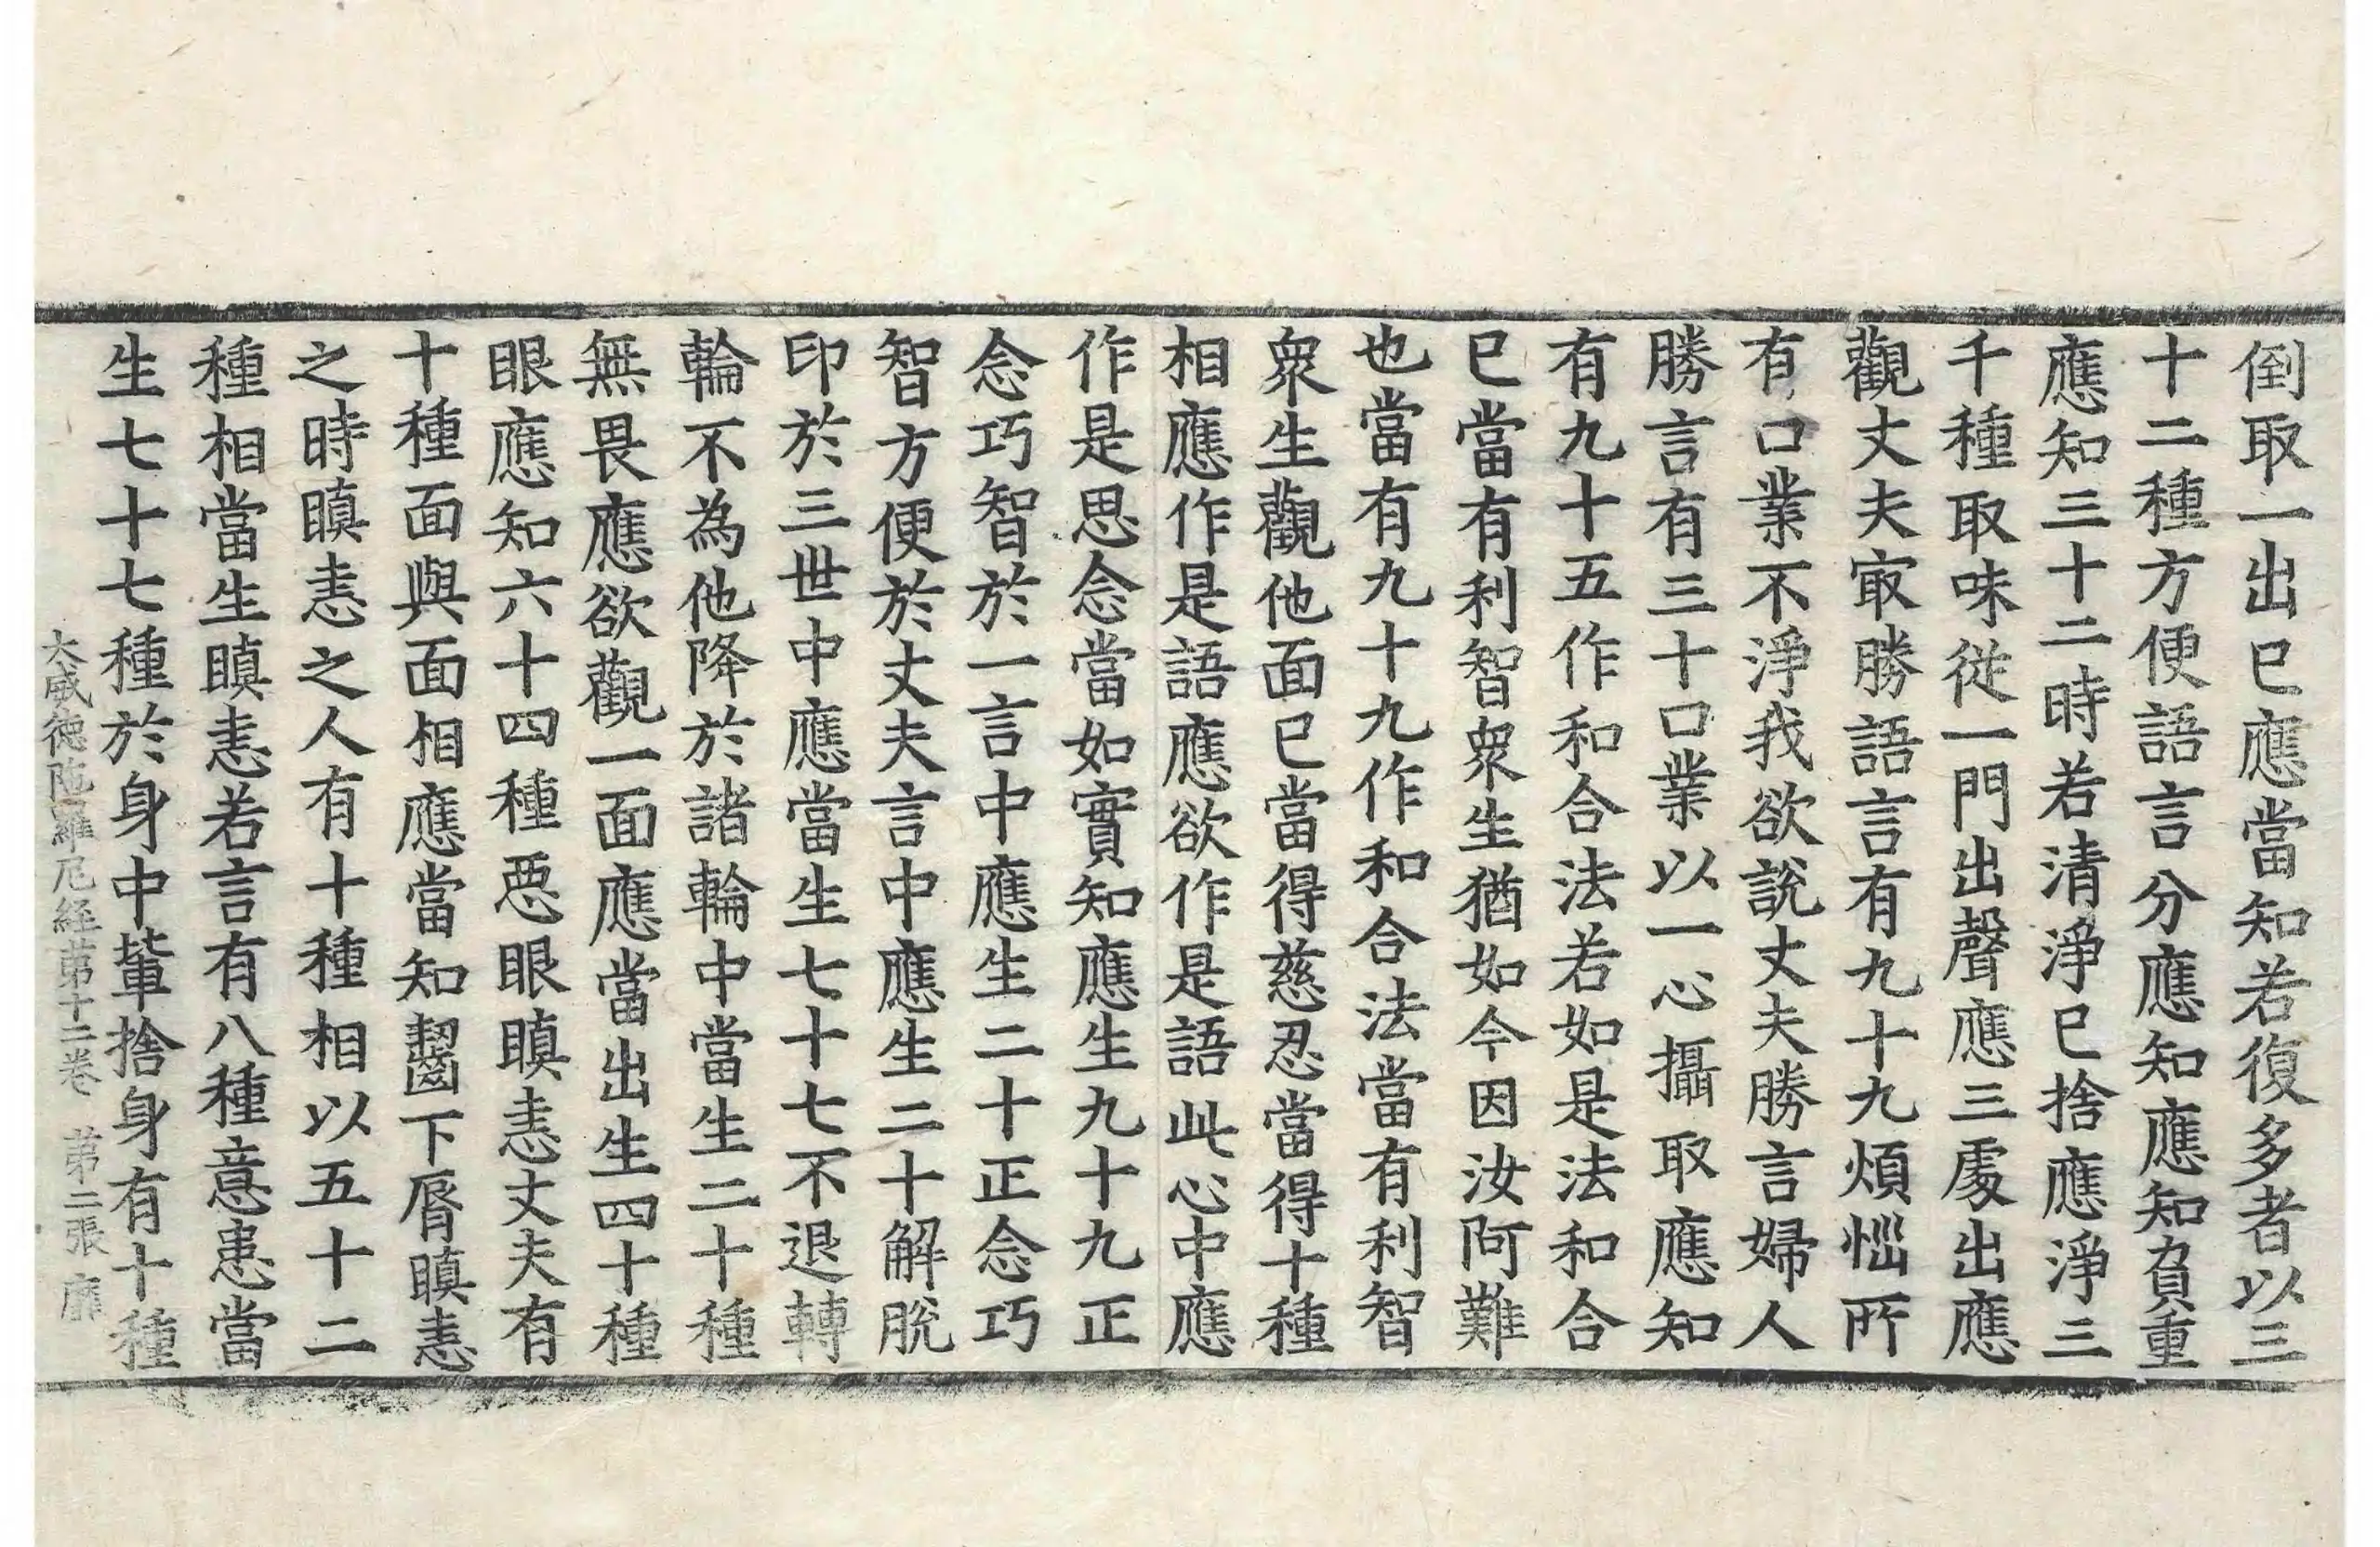 倒取一出已應當知若復多者以三
十二種方便語言分應知應知負重
應知三十二時若清淨已捨應淨三
千種取味從一門出聲應三處出應
觀丈夫㝡勝語言有九十九煩惱所
有口業不淨我欲說丈夫勝言婦人
勝言有三十口業以一心攝取應知
有九十五作和合法若如是法和合
已當有利智衆生猶如今因汝阿難
也當有九十九作和合法當有利智
衆生觀他面已當得慈忍當得十種
相應作是語應欲作是語此心中應
作是思念當如實知應生九十九正
念巧智於一言中應生二十正念巧
智方便於丈夫言中應生二十解脫
印於三世中應當生七十七不退轉
輪不為他降於諸輪中當生二十種
無畏應欲觀一面應當出生四十種
眼應知六十四種惡眼瞋恚丈夫有
十種面與面相應當知齧下脣瞋恚
之時瞋恚之人有十種相以五十二
種相當生瞋恚若言有八種意患當
生七十七種於身中輩捨身有十種
大威德陁羅尼経苐十二卷 苐二張 靡